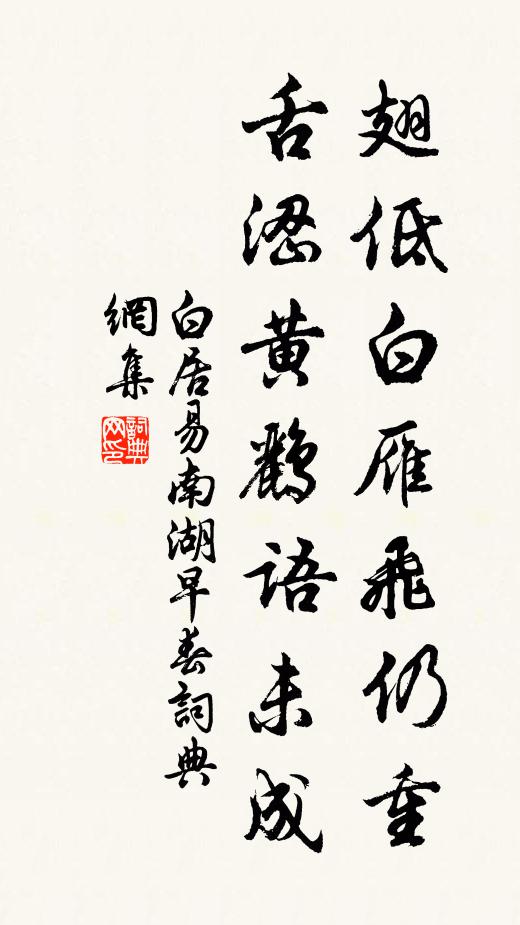 翅低白雁飛仍重
舌澀黄鸝語未成
白居易南湖早春詞典
網集
詞典
网印